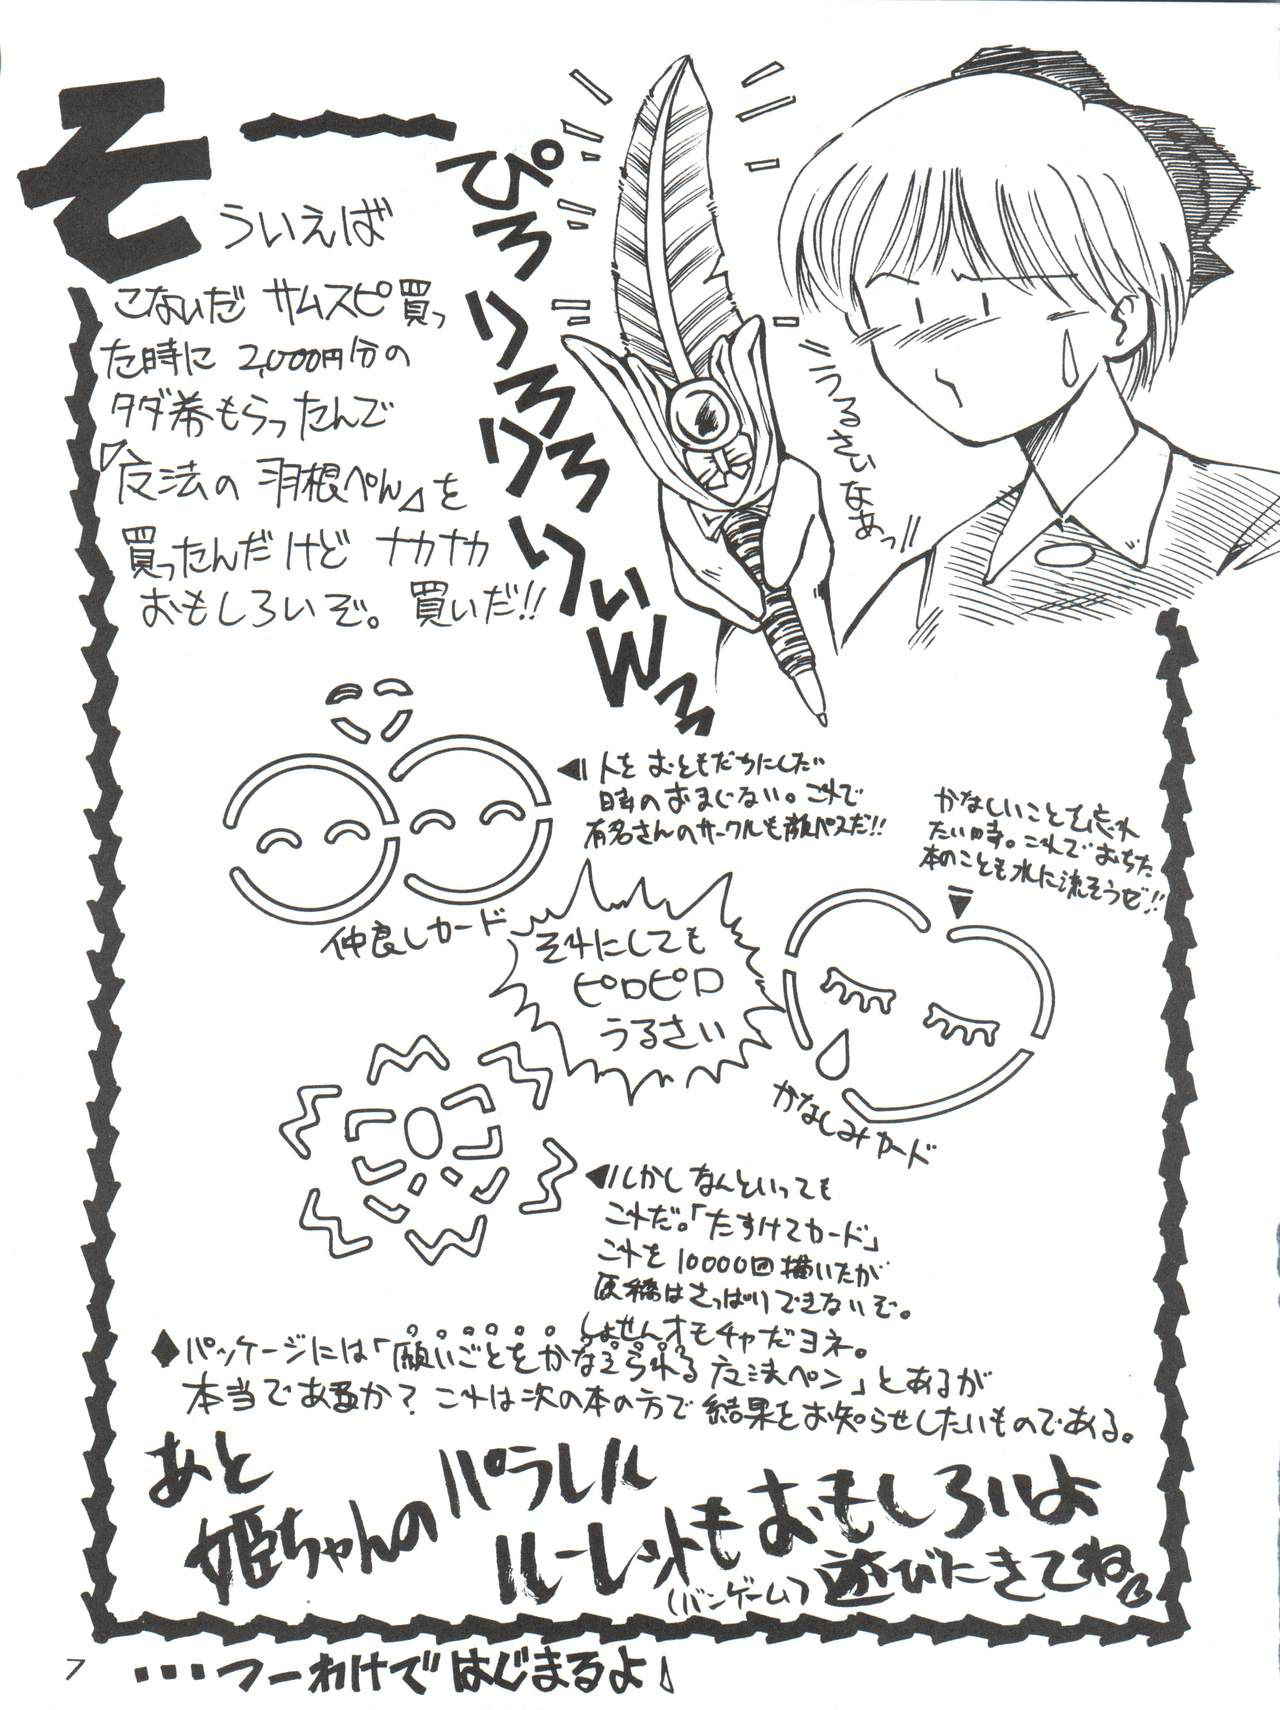 そういえば
こないだ サムスピ買っ
た時に 2,000円分の
タダ券もらったんで
『魔法の羽根ぺん』を
買ったんだけど ナカナカ
おもしろいぞ。 買いだ!!
ぴろりろりろりろりぃWろ
うるさいなあっ!!
人をおともだちにしたい
時のおまじない。これで
有名さんのサークルも顔パスだ!!
仲良しカード
かなしいことを忘れ
たい時。これでおちた
本のことも水に流そうぜ!!
かなしみカード
それにしても
ピロピロ
うるさい
しかしなんといっても
これだ。「たすけてカード」
これを10000回描いたが
原稿はさっぱりできないぞ。
しょせんオモチャだヨネ。
◆パッケージには「願いごとをかなえられる魔法ペン」とあるが
本当であるか? これは次の本の方で結果をお知らせしたいものである。
あと
姫ちゃんのパラレル
ルーレットもおもしろいよ
(バンゲーム)
遊びにきてね
7
・・・つーわけではじまるよ♪